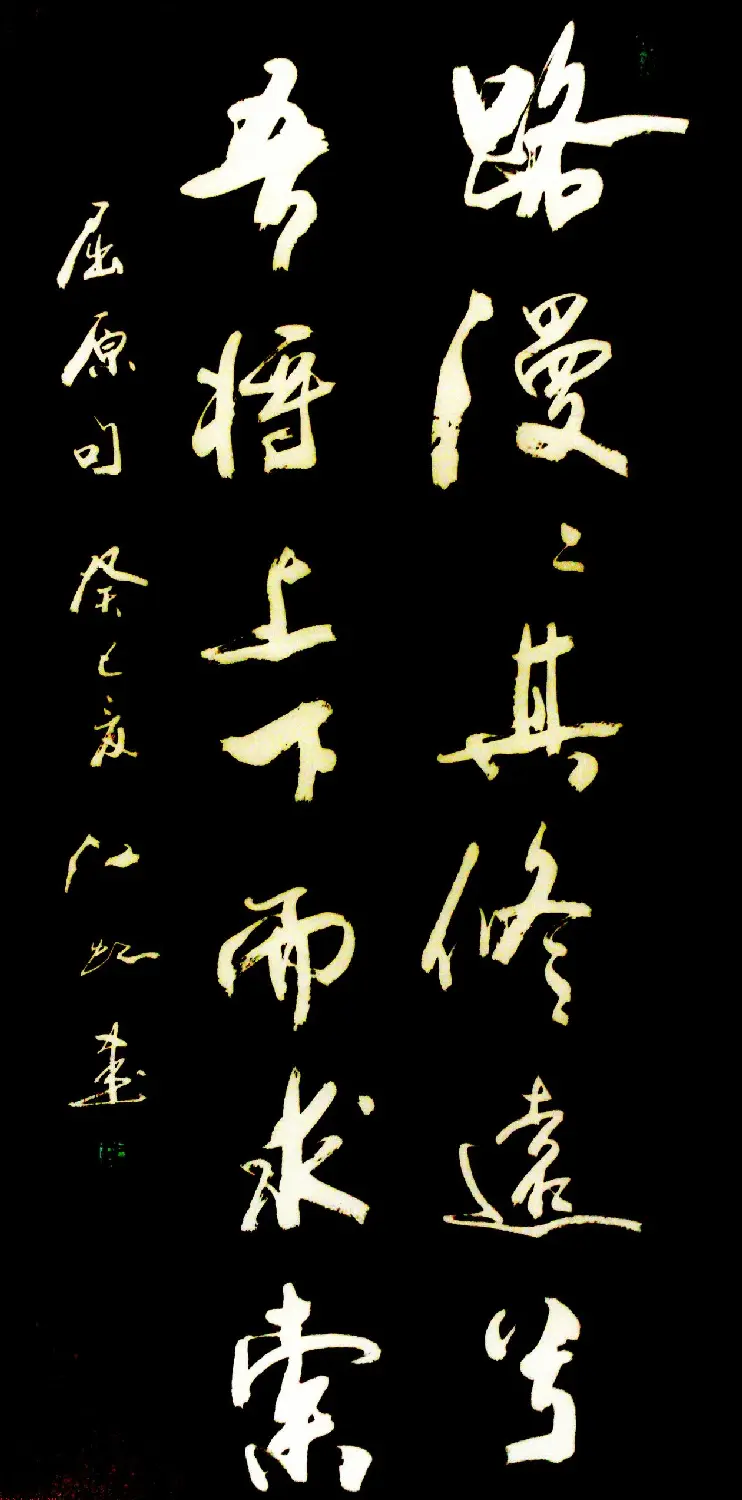 路漫〻其修遠兮
吾將上下而求索
屈原句 癸巳夏 江虹書